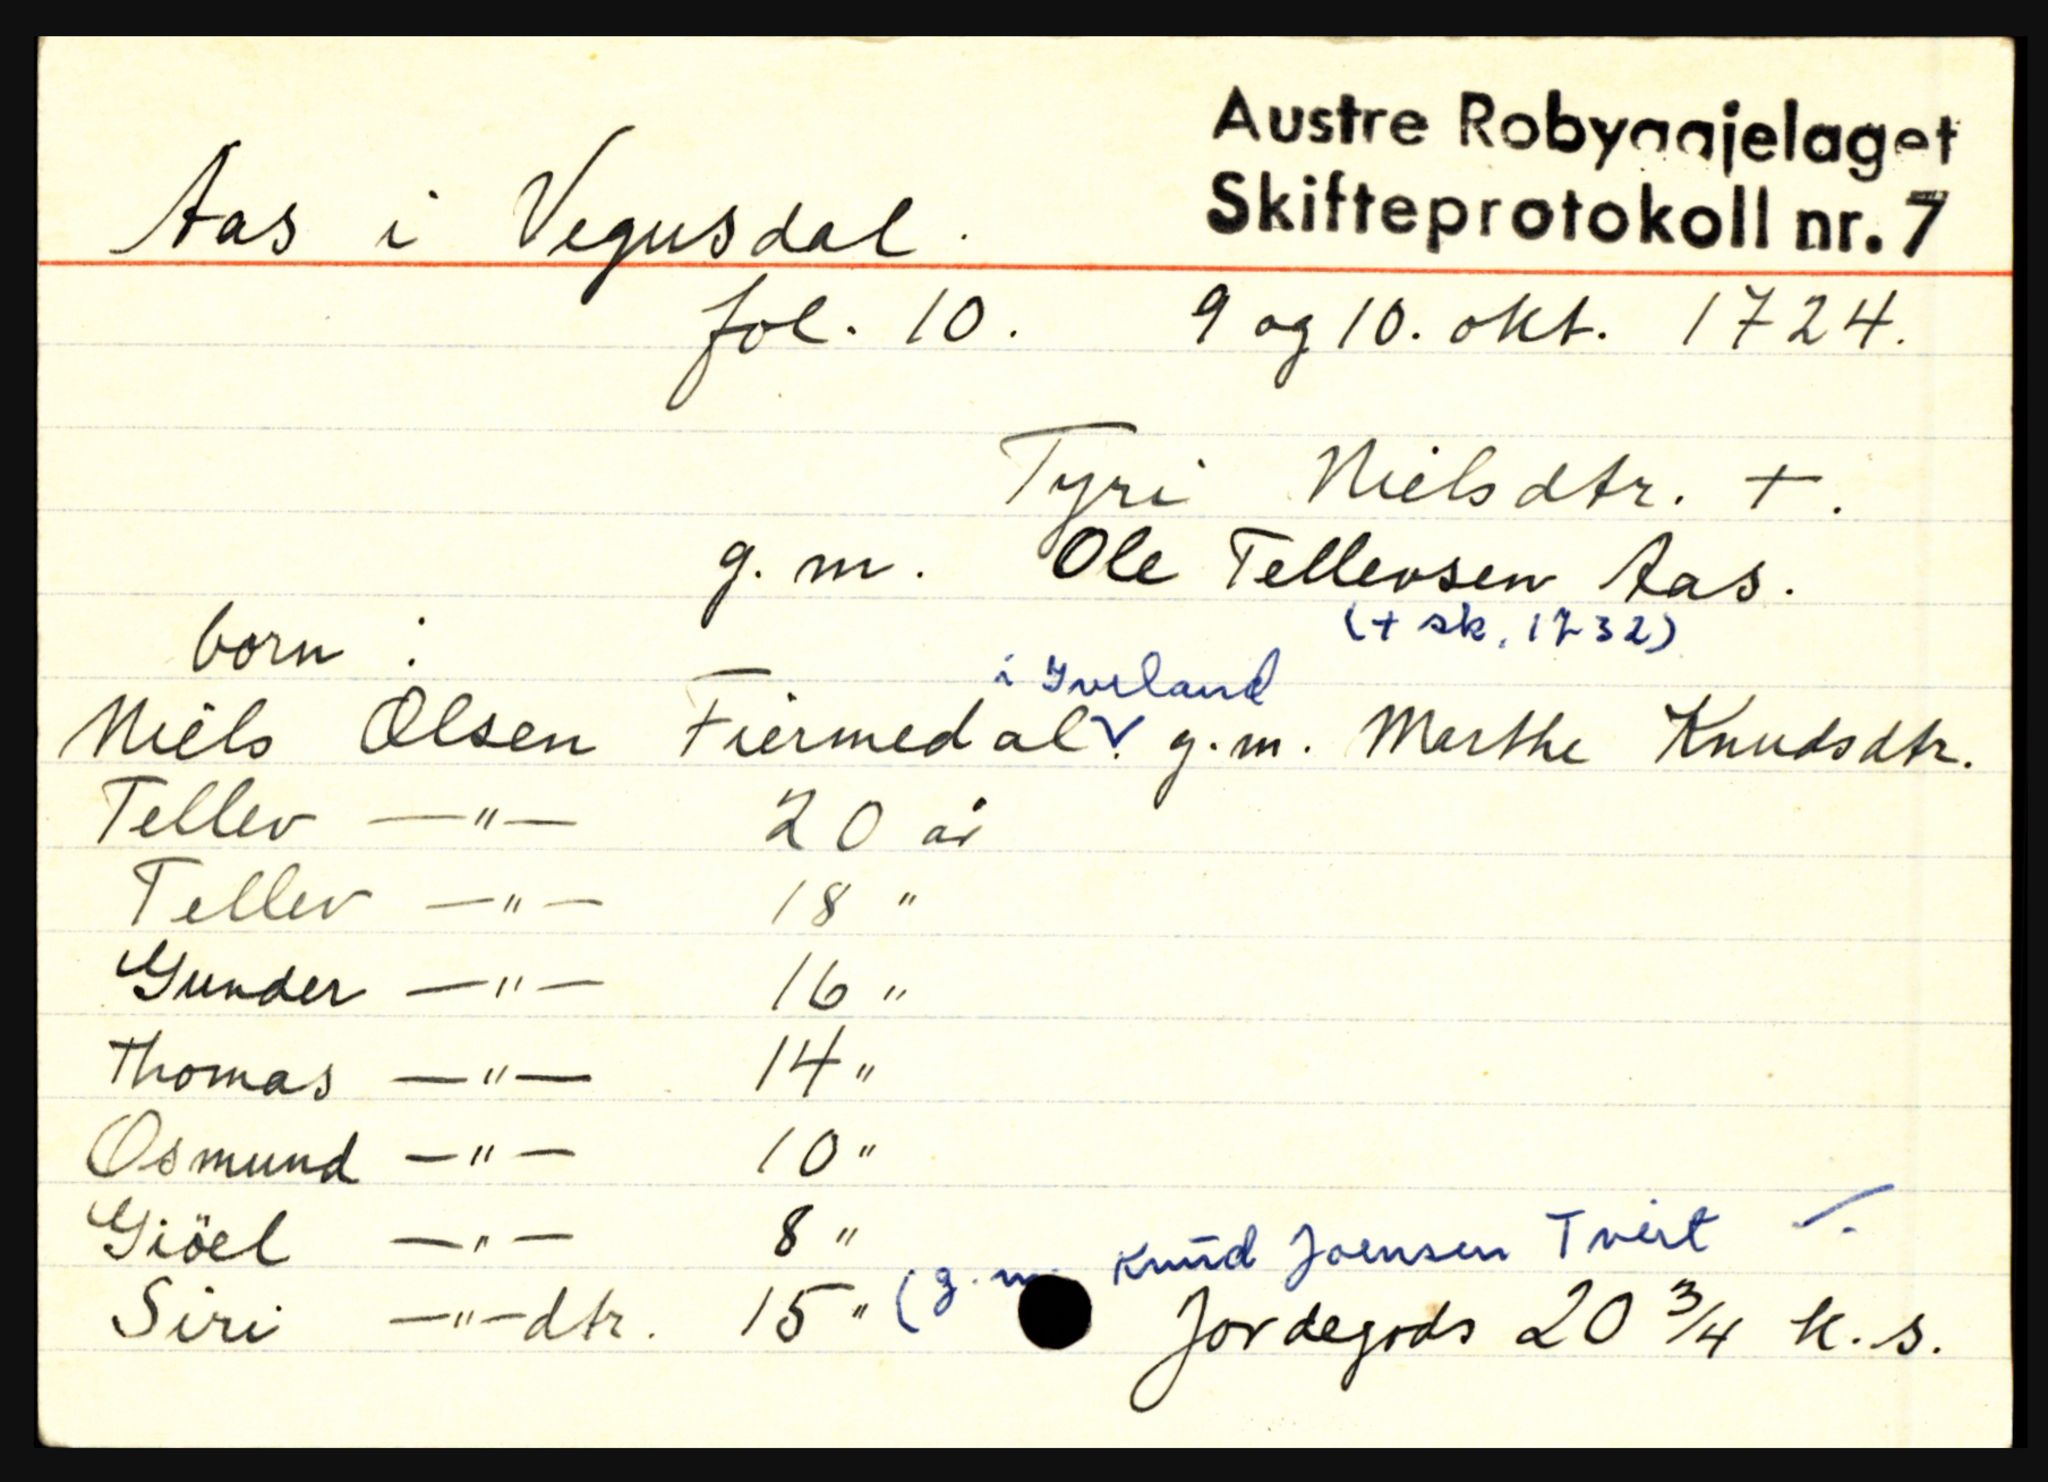 Austre Robyggjelaget
Skifteprotokoll nr. 7
Aas i Vegusdal.
fol. 10. 9 og 10. okt. 1724.
Tyri Nielsdtr. +.
g. m. Ole Tellevsen Aas.
(+ sk. 1732)
born :
i Iveland
Niels Olsen Fiermedal V. g.m. Marthe Knudsdtr.
Tellev —"— 20 år
Tellev —"— 18 "
Gunder —"— 16 "
Thomas —"— 14 "
Osmund —"— 10 "
Giöel —"— 8 "
(g. m. Knud Joensen Tveit
Siri —"—dtr. 15 "
Jordegods 20 3/4 k. s.